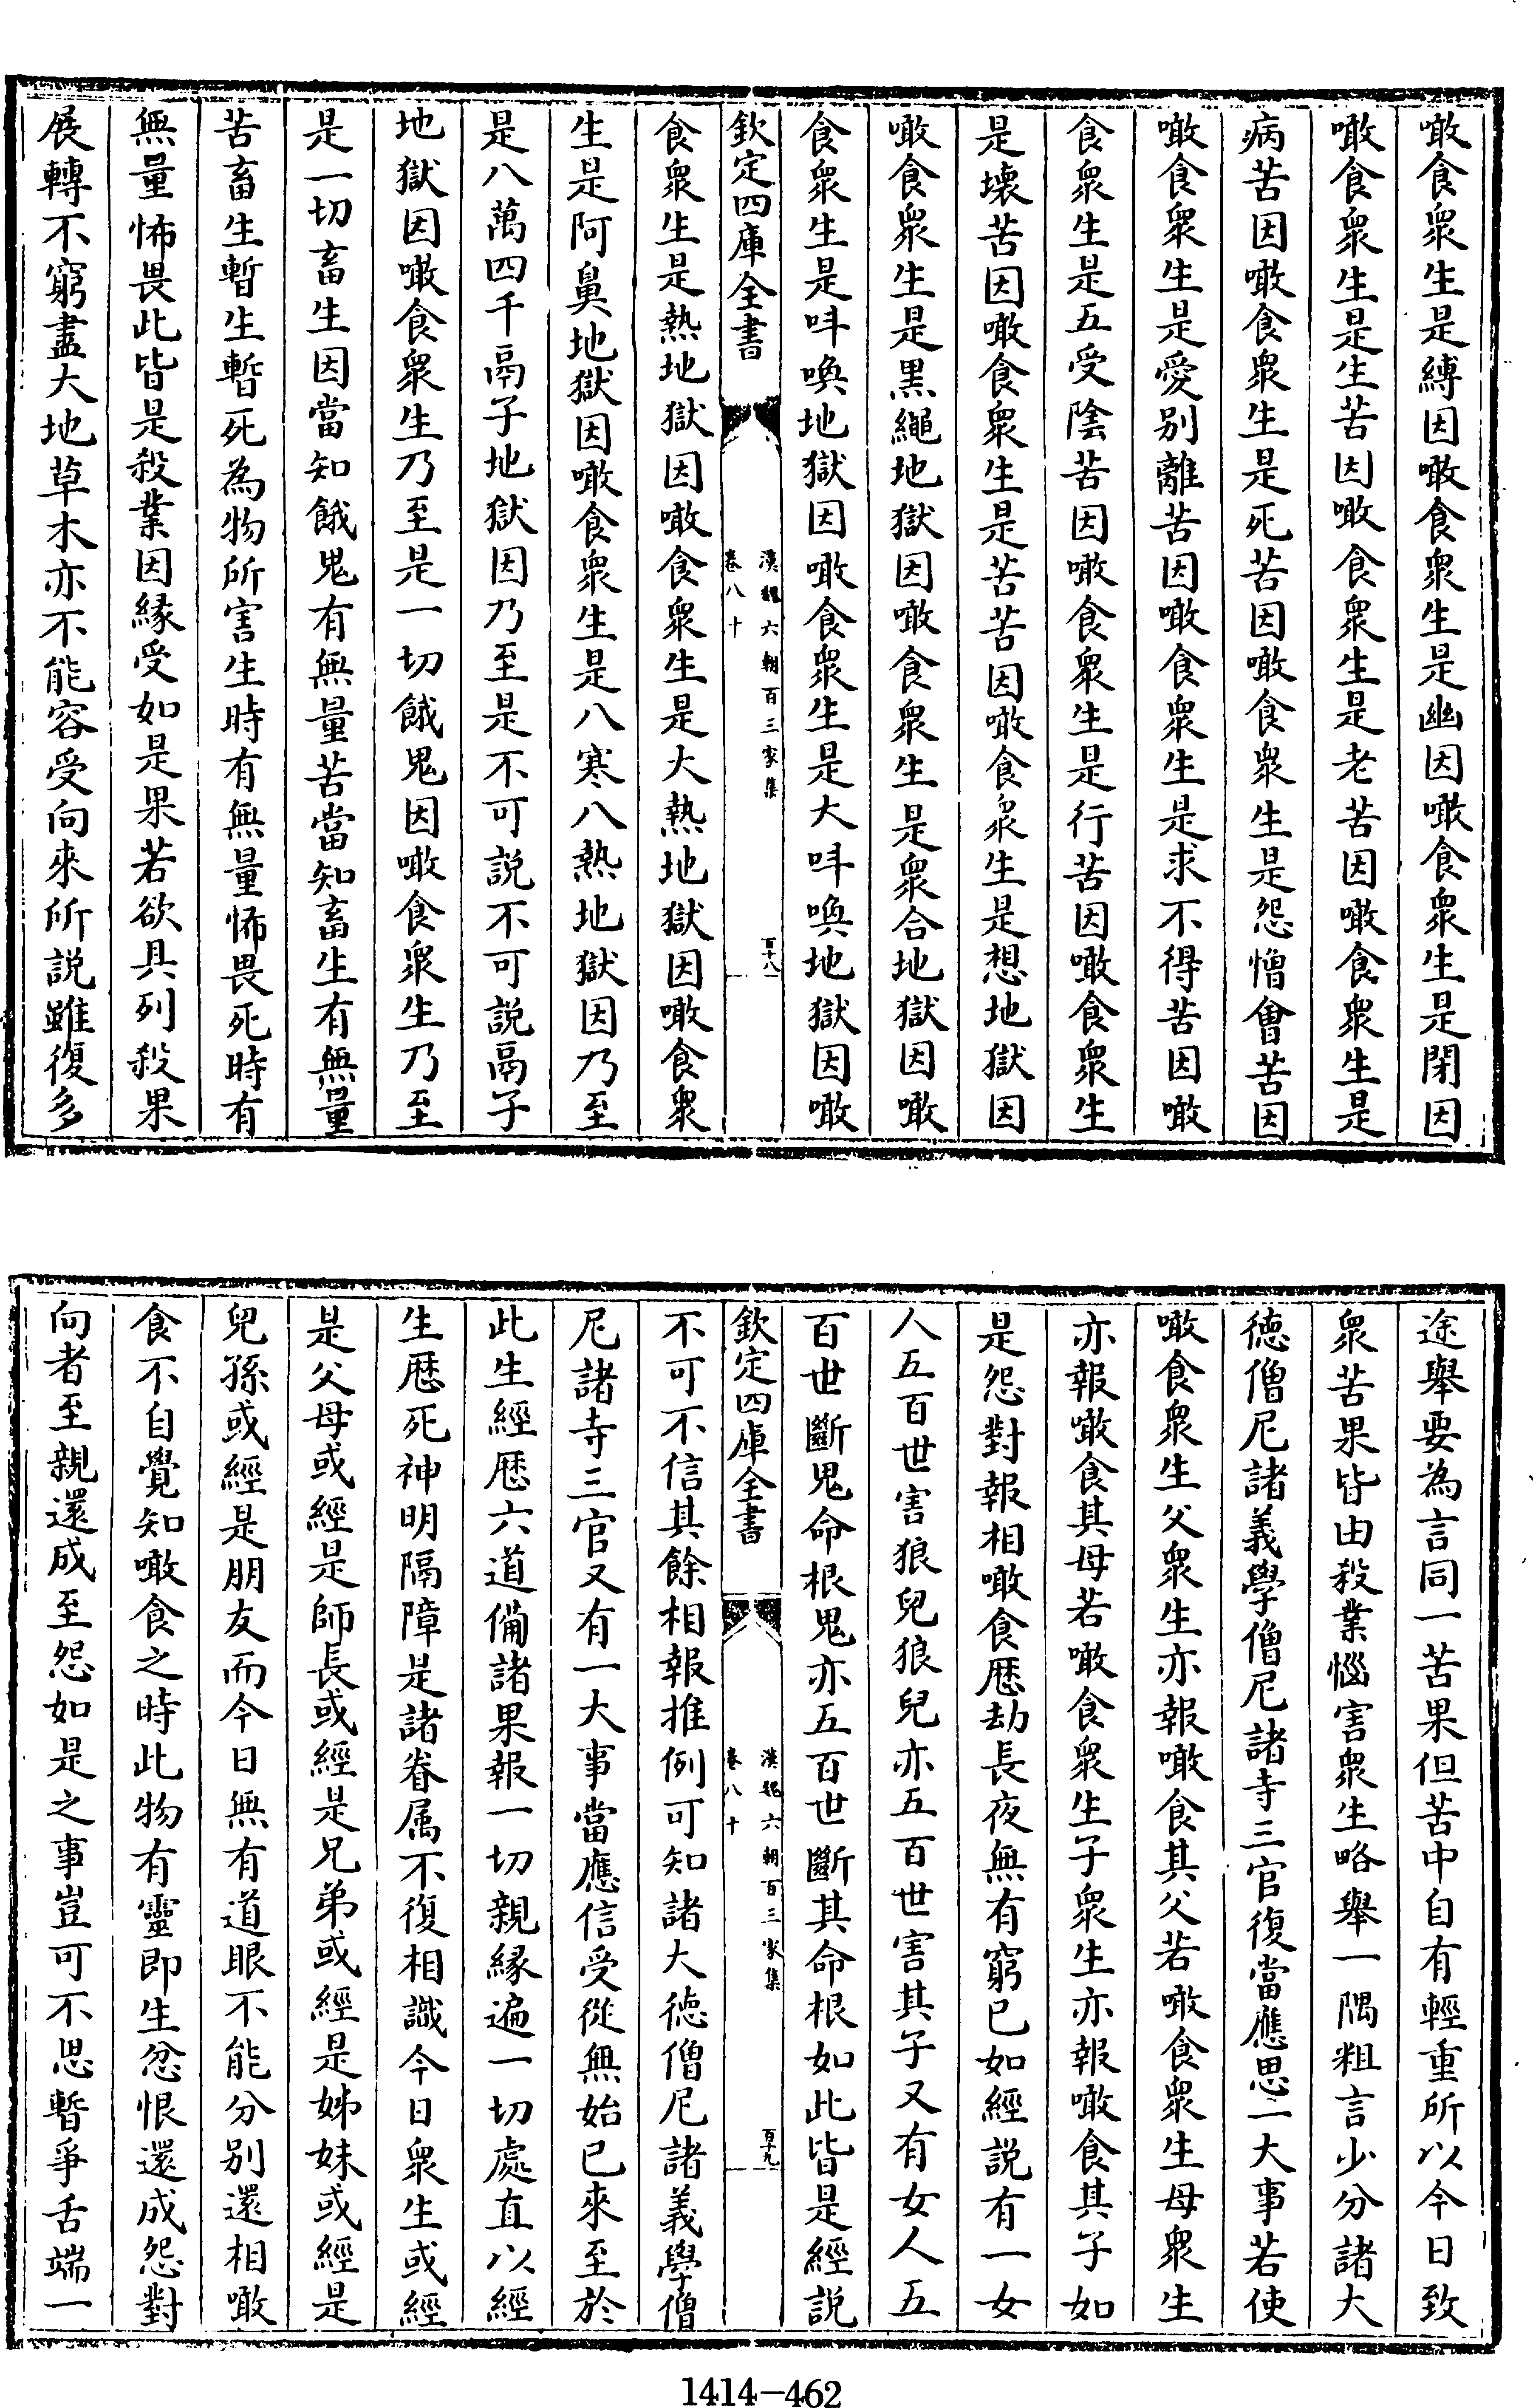 噉食衆生是縛因噉食衆生是幽因噉食衆生是閉因
噉食衆生是生苦因噉食衆生是老苦因噉食衆生是
病苦因噉食衆生是死苦因噉食衆生是怨憎會苦因
噉食衆生是愛别離苦因噉食衆生是求不得苦因噉
食衆生是五受陰苦因噉食衆生是行苦因噉食衆生
是壞苦因噉食衆生是苦苦因噉食衆生是想地獄因
噉食衆生是黒繩地獄因噉食衆生是衆合地獄因噉
食衆生是呌喚地獄因噉食衆生是大呌喚地獄因噉
欽定四庫全書
漢魏六朝百三家集
卷八十
百十八
食衆生是熱地獄因噉食衆生是大熱地獄因噉食衆
生是阿鼻地獄因噉食衆生是八寒八熱地獄因乃至
是八萬四千鬲子地獄因乃至是不可説不可説鬲子
地獄因噉食衆生乃至是一切餓鬼因噉食衆生乃至
是一切畜生因當知餓鬼有無量苦當知畜生有無量
苦畜生暫生暫死為物所害生時有無量怖畏死時有
無量怖畏此皆是殺業因緣受如是果若欲具列殺果
展轉不窮盡大地草木亦不能容受向來所説雖復多
途舉要為言同一苦果但苦中自有輕重所以今日致
衆苦果皆由殺業惱害衆生略舉一隅粗言少分諸大
徳僧尼諸義學僧尼諸寺三官復當應思一大事若使
噉食衆生父衆生亦報噉食其父若噉食衆生母衆生
亦報噉食其母若噉食衆生子衆生亦報噉食其子如
是怨對報相噉食厯劫長夜無有窮已如經説有一女
人五百世害狼兒狼兒亦五百世害其子又有女人五
百世斷鬼命根鬼亦五百世斷其命根如此皆是經説
欽定四庫全書
漢魏六朝百三家集
卷八十
百十九
不可不信其餘相報推例可知諸大徳僧尼諸義學僧
尼諸寺三官又有一大事當應信受從無始已來至於
此生經厯六道備諸果報一切親緣遍一切處直以經
生厯死神明隔障是諸眷属不復相識今日衆生或經
是父母或經是師長或經是兄弟或經是姊妹或經是
兒孫或經是朋友而今日無有道眼不能分别還相噉
食不自覺知噉食之時此物有靈即生忿恨還成怨對
向者至親還成至怨如是之事豈可不思暫爭舌端一
1414—462